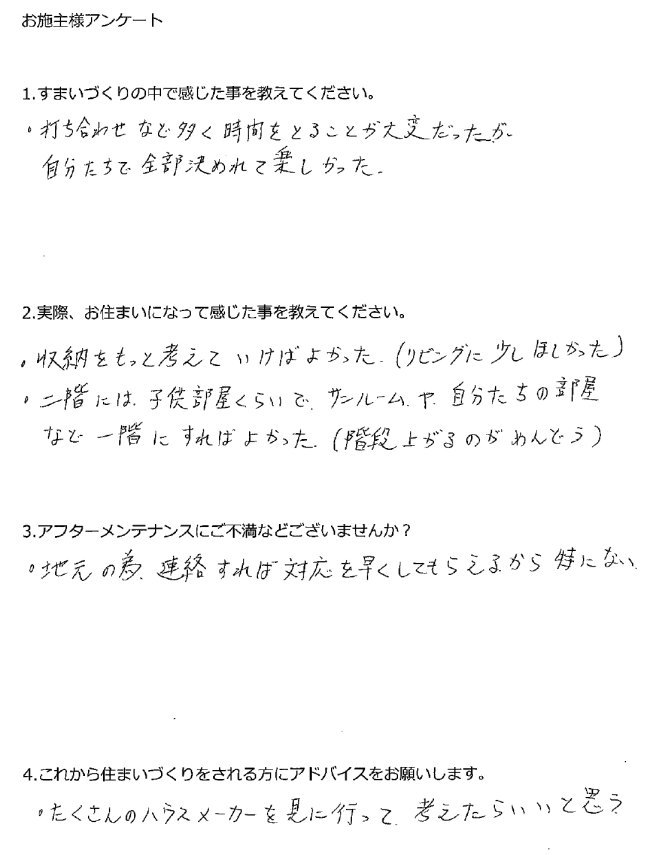 お施主様アンケート
1.すまいづくりの中で感じた事を教えてください。
・打ち合わせなど多く時間をとることが大変だったが、
自分たちで全部決めれて楽しかった。
2.実際、お住まいになって感じた事を教えてください。
・収納をもっと考えていけばよかった。(リビングに少しほしかった)
・二階には、子供部屋くらいで、サンルーム、や、自分たちの部屋
など一階にすればよかった。(階段上がるのがめんどう)
3.アフターメンテナンスにご不満などございませんか？
・地元の為、連絡すれば対応を早くしてもらえるから特にない。
4.これから住まいづくりをされる方にアドバイスをお願いします。
・たくさんのハウスメーカーを見に行って、考えたらいいと思う。